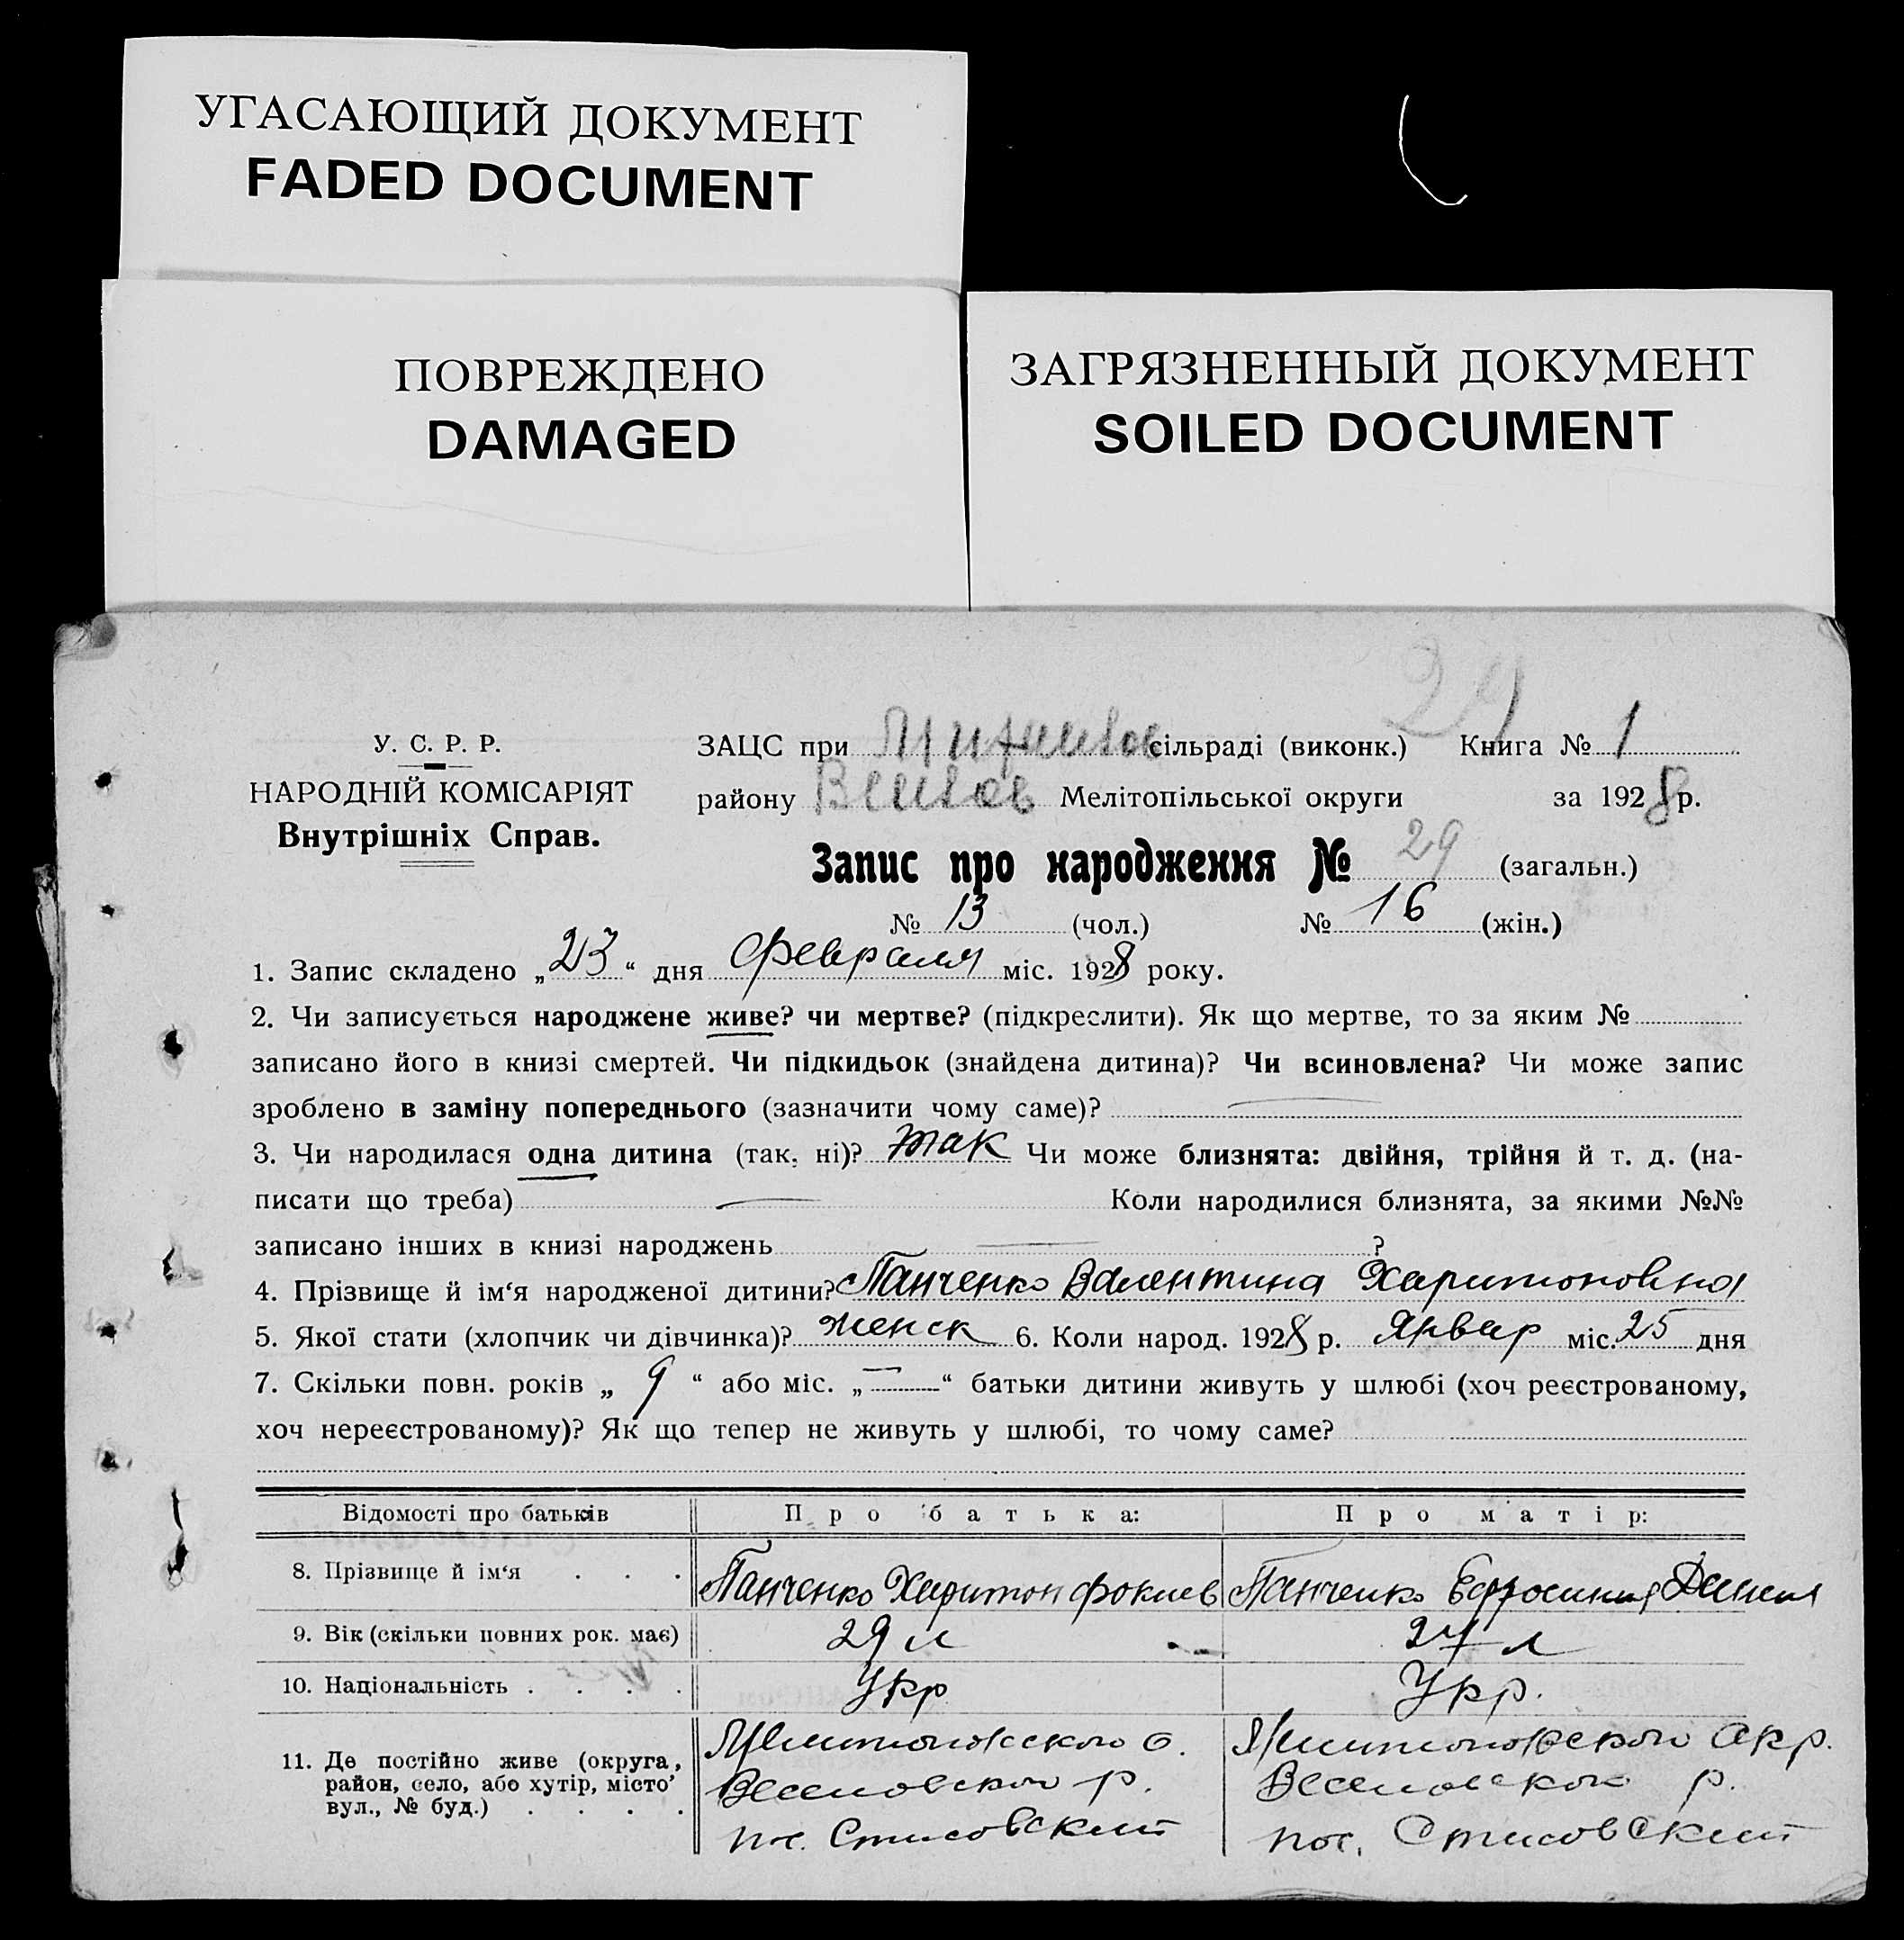 УГАСАЮЩИЙ ДОКУМЕНТ
FADED DOCUMENT
ПОВРЕЖДЕНО
DAMAGED
ЗАГРЯЗНЕННЫЙ ДОКУМЕНТ
SOILED DOCUMENT
29
У. С. Р. Р.
НАРОДНІЙ КОМІСАРІЯТ
Внутрішніх Справ.
ЗАЦС при сільраді (виконк.) Книга № 1
району Мелітопільської округи за 1928 р.
Запис про народження № 29 (загальн.)
№ 13 (чол.) № 16 (жін.)
1. Запис складено „23“ дня Февраля міс. 1928 року.
2. Чи записується народжене живе? чи мертве? (підкреслити). Як що мертве, то за яким №
записано його в книзі смертей. Чи підкидьок (знайдена дитина)? Чи всиновлена? Чи може запис
зроблено в заміну попереднього (зазначити чому саме)? —
3. Чи народилася одна дитина (так, ні)? так Чи може близнята: двійня, трійня й т. д. (на-
писати що треба) — Коли народилися близнята, за якими №№
записано інших в книзі народжень — ?
4. Прізвище й ім‘я народженої дитини? Панченко Валентина Харитоновна
5. Якої стати (хлопчик чи дівчинка)? женск 6. Коли народ. 1928 р. Январ міс. 25 дня
7. Скільки повн. років „ 9 “ або міс. „ — “ батьки дитини живуть у шлюбі (хоч реєстрованому,
хоч нереєстрованому)? Як що тепер не живуть у шлюбі, то чому саме?
Відомості про батьків Про батька: Про матір:
8. Прізвище й ім‘я . . . Панченко Харитон Фокиев Панченко Ефросиния
9. Вік (скільки повних рок. має) 29 л 27 л
10. Національність . . . . Укр Укр.
11. Де постійно живе (округа,
район, село, або хутір, місто,
вул., № буд.) . . . .
Мелитопольского о.
Веселовского р.
пос.
Мелитопольского Окр.
Веселовского р.
пос.